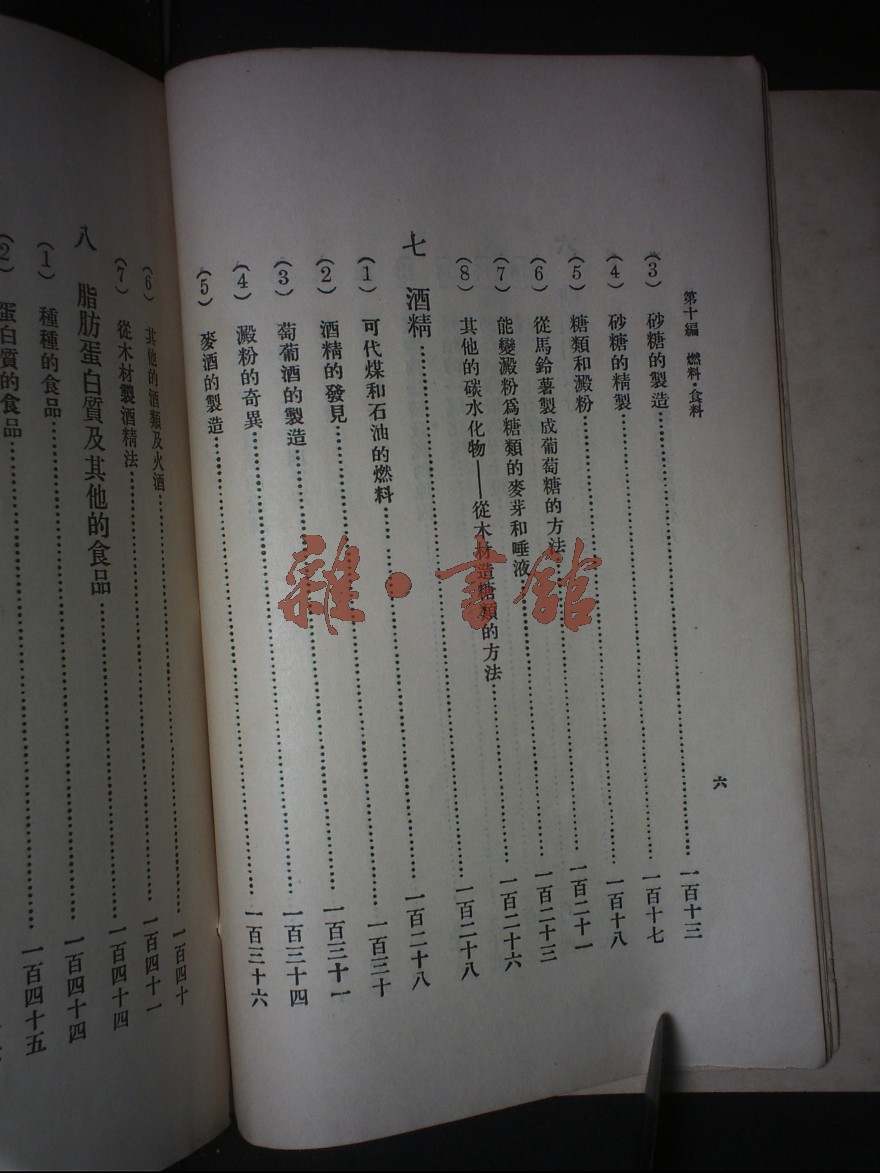 第十編　燃料·食料
六
(3)　砂糖的製造……一百十三
(4)　砂糖的精製……一百十七
(5)　糖類和澱粉……一百十八
(6)　從馬鈴薯製成葡萄糖的方法……一百二十一
(7)　能變澱粉爲糖類的麥芽和唾液……一百二十三
(8)　其他的碳水化物——從木材造糖類的方法……一百二十六
七　酒精……一百二十八
(1)　可代煤和石油的燃料……一百二十八
(2)　酒精的發見……一百三十
(3)　萄葡酒的製造……一百三十一
(4)　澱粉的奇異……一百三十四
(5)　麥酒的製造……一百三十六
(6)　其他的酒類及火酒……一百四十
(7)　從木材製酒精法……一百四十一
八　脂肪蛋白質及其他的食品……一百四十四
(1)　種種的食品……一百四十四
(2)　蛋白質的食品……一百四十五
雜·書館